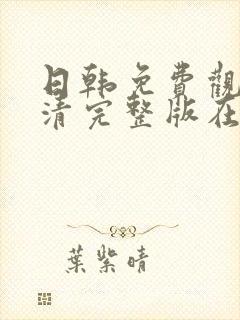 日韩免費觀
清完整版在
葉紫晴